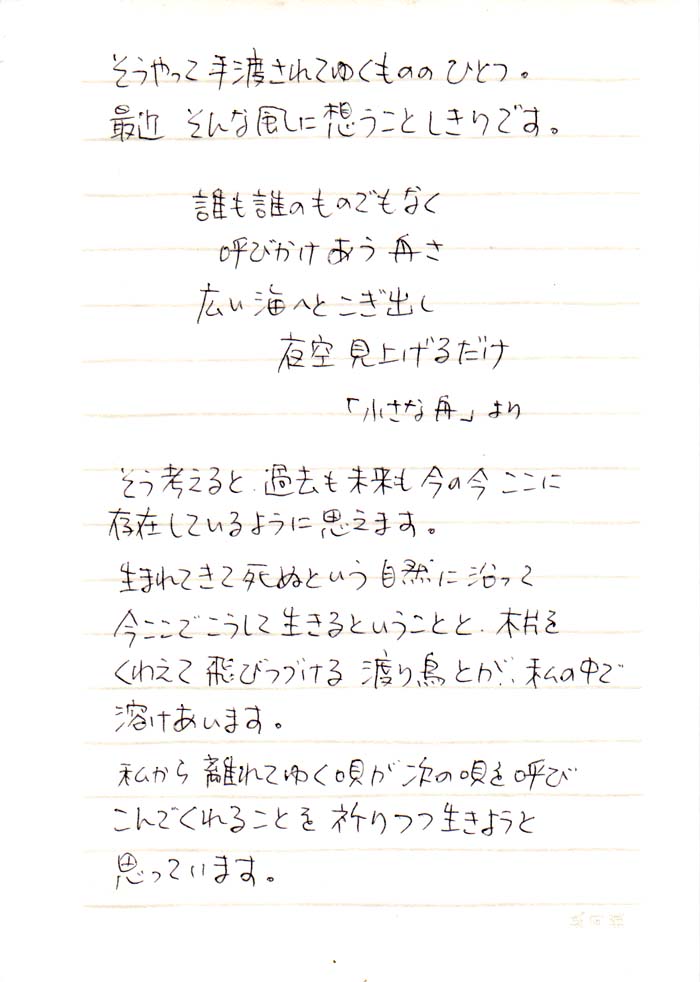 そうやって手渡されてゆくもののひとつ。
最近 そんな風に想うことしきりです。
誰も誰のものでもなく
呼びかけあう舟さ
広い海へとこぎ出し
夜空見上げるだけ
「小さな舟」より
そう考えると、過去も未来も今の今ここに
存在しているように思えます。
生まれてきて死ぬという自然に沿って
今ここでこうして生きるということと、木片を
くわえて飛びつづける渡り鳥とが、私の中で
溶けあいます。
私から離れてゆく唄が次の唄を呼び
こんでくれることを祈りつつ生きようと
思っています。